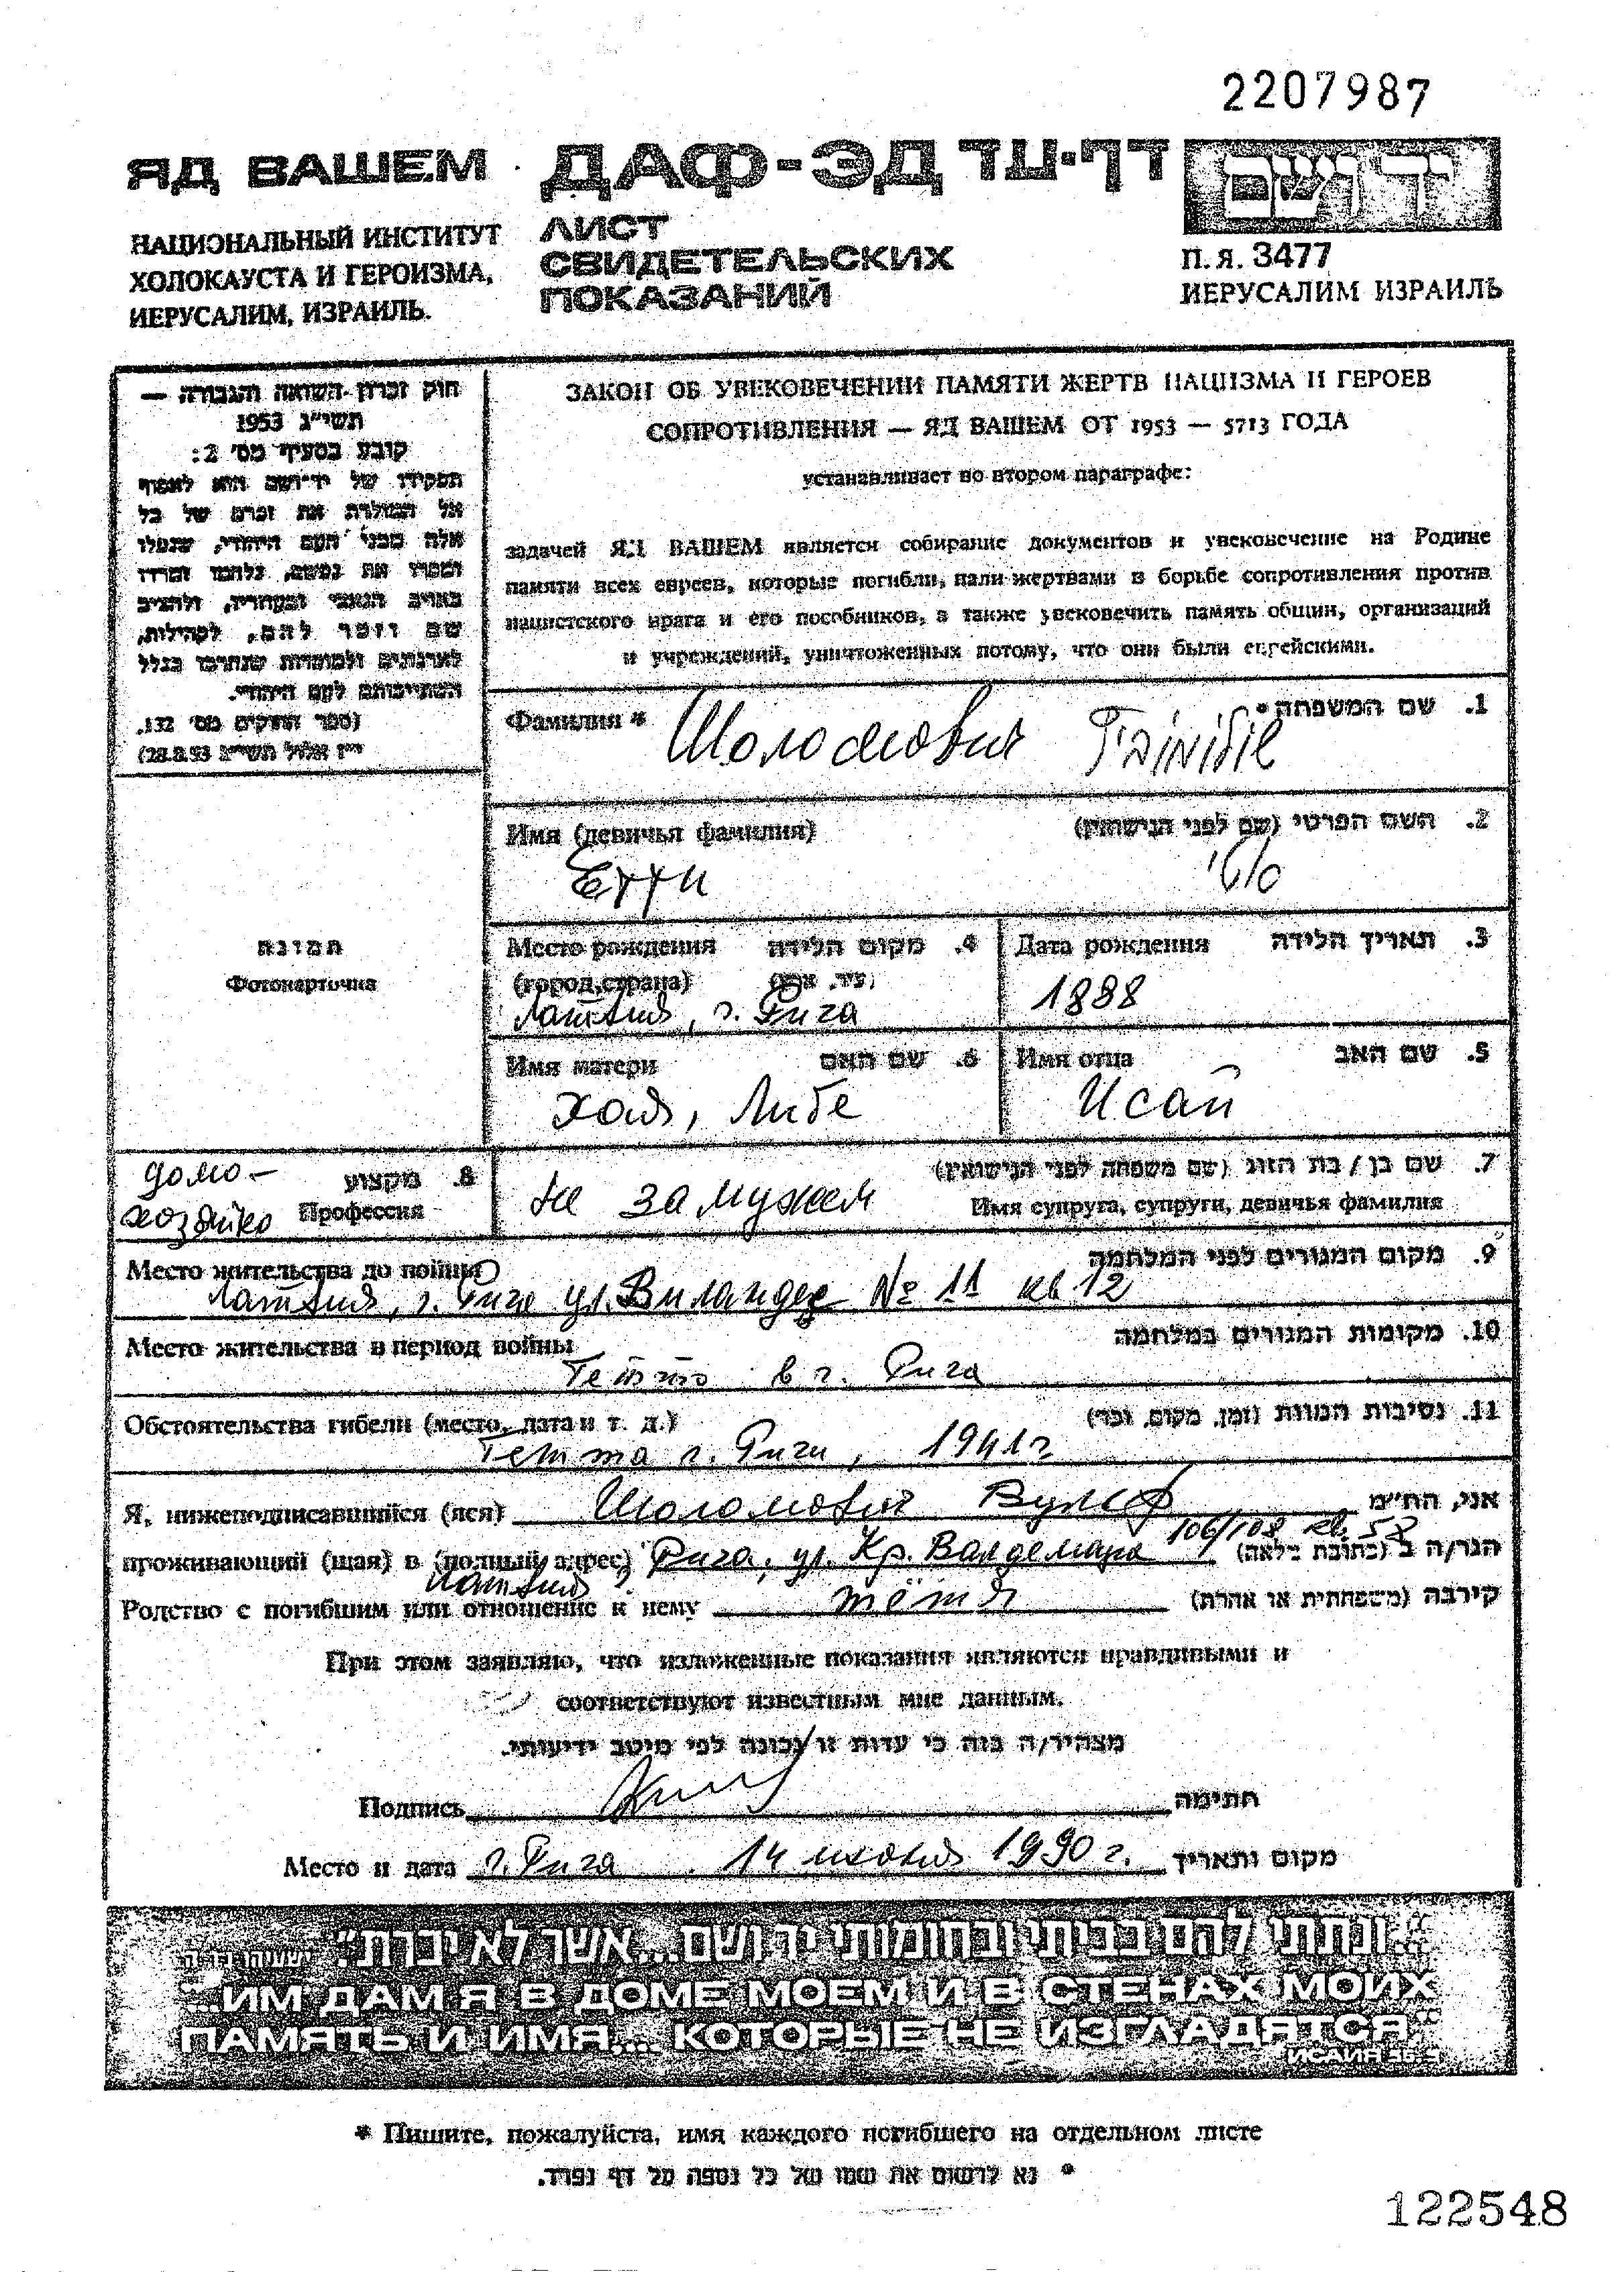 2207987
ЯД ВАШЕМ ДАФ-ЭД דף-עד יד ושם
НАЦИОНАЛЬНЫЙ ИНСТИТУТ
ХОЛОКАУСТА И ГЕРОИЗМА,
ИЕРУСАЛИМ, ИЗРАИЛЬ.
ЛИСТ
СВИДЕТЕЛЬСКИХ
ПОКАЗАНИЙ
П.Я. 3477
ИЕРУСАЛИМ ИЗРАИЛЬ
חוק זכרון השואה והגבורה —
תשי״ג 1953
קובע בסעיף מס׳ 2:
תפקידו של יד־ושם הוא לאסוף
אל המולדת את זכרם של כל
אלה מבני העם היהודי, שנפלו
ומסרו את נפשם, נלחמו ומרדו
באויב הנאצי ובעוזריו, ולהציב
שם וזכר להם, לקהילות,
לארגונים ולמוסדות שנחרבו בגלל
השתייכותם לעם היהודי.
(ספר החוקים מס׳ 132,
י״ז אלול תשי״ג 28.8.53)
ЗАКОН ОБ УВЕКОВЕЧЕНИИ ПАМЯТИ ЖЕРТВ НАЦИЗМА И ГЕРОЕВ
СОПРОТИВЛЕНИЯ — ЯД ВАШЕМ ОТ 1953 — 5713 ГОДА
устанавливает во втором параграфе:
задачей ЯД ВАШЕМ является собирание документов и увековечение на Родине
памяти всех евреев, которые погибли, пали жертвами в борьбе сопротивления против
нацистского врага и его пособников, а также увековечить память общин, организаций
и учреждений, уничтоженных потому, что они были еврейскими.
Фамилия * Шоломович שולומוביץ 1. שם המשפחה*
Имя (девичья фамилия) 2. השם הפרטי (שם לפני הנישואין)
Етти אטי
תמונה
Фотокарточка
Место рождения 4. מקום הלידה
(город, страна) (עיר, ארץ)
Латвия, г. Рига
Дата рождения 3. תאריך הלידה
1888
Имя матери 6. שם האם
Хая, Либе
Имя отца 5. שם האב
Исай
домо-
хозяйка Профессия 8. מקצוע
не замужем 7. שם בן / בת הזוג (שם משפחה לפני הנישואין)
Имя супруга, супруги, девичья фамилия
Место жительства до войны 9. מקום המגורים לפני המלחמה
Латвия, г. Рига ул. Виландес № 11 кв 12
Место жительства в период войны 10. מקומות המגורים במלחמה
Гетто в г. Рига
Обстоятельства гибели (место, дата и т. д.) 11. נסיבות המוות (זמן, מקום, וכו׳)
Гетто г. Риги, 1941 г
Я, нижеподписавшийся (яся) Шоломович Вульф אני, הח״מ
106/108 кв. 58
проживающий (щая) в (полный адрес) Рига, ул. Кр. Валдемара הגר/ה ב (כתובת מלאה)
Латвия
Родство с погибшим или отношение к нему тётя קירבה (משפחתית או אחרת)
При этом заявляю, что изложенные показания являются правдивыми и
соответствуют известным мне данным.
מצהיר/ה בזה כי עדות זו נכונה לפי מיטב ידיעותי.
Подпись חתימה
Место и дата г. Рига 14 июня 1990 г. מקום ותאריך
״...ונתתי להם בביתי ובחומותי יד ושם...אשר לא יכרת״. ישעיהו נו, ה
"...ИМ ДАМ Я В ДОМЕ МОЕМ И В СТЕНАХ МОИХ
ПАМЯТЬ И ИМЯ... КОТОРЫЕ НЕ ИЗГЛАДЯТСЯ"
ИСАИЯ 56,5
* Пишите, пожалуйста, имя каждого погибшего на отдельном листе
* נא לרשום את שמו של כל נספה על דף נפרד.
122548